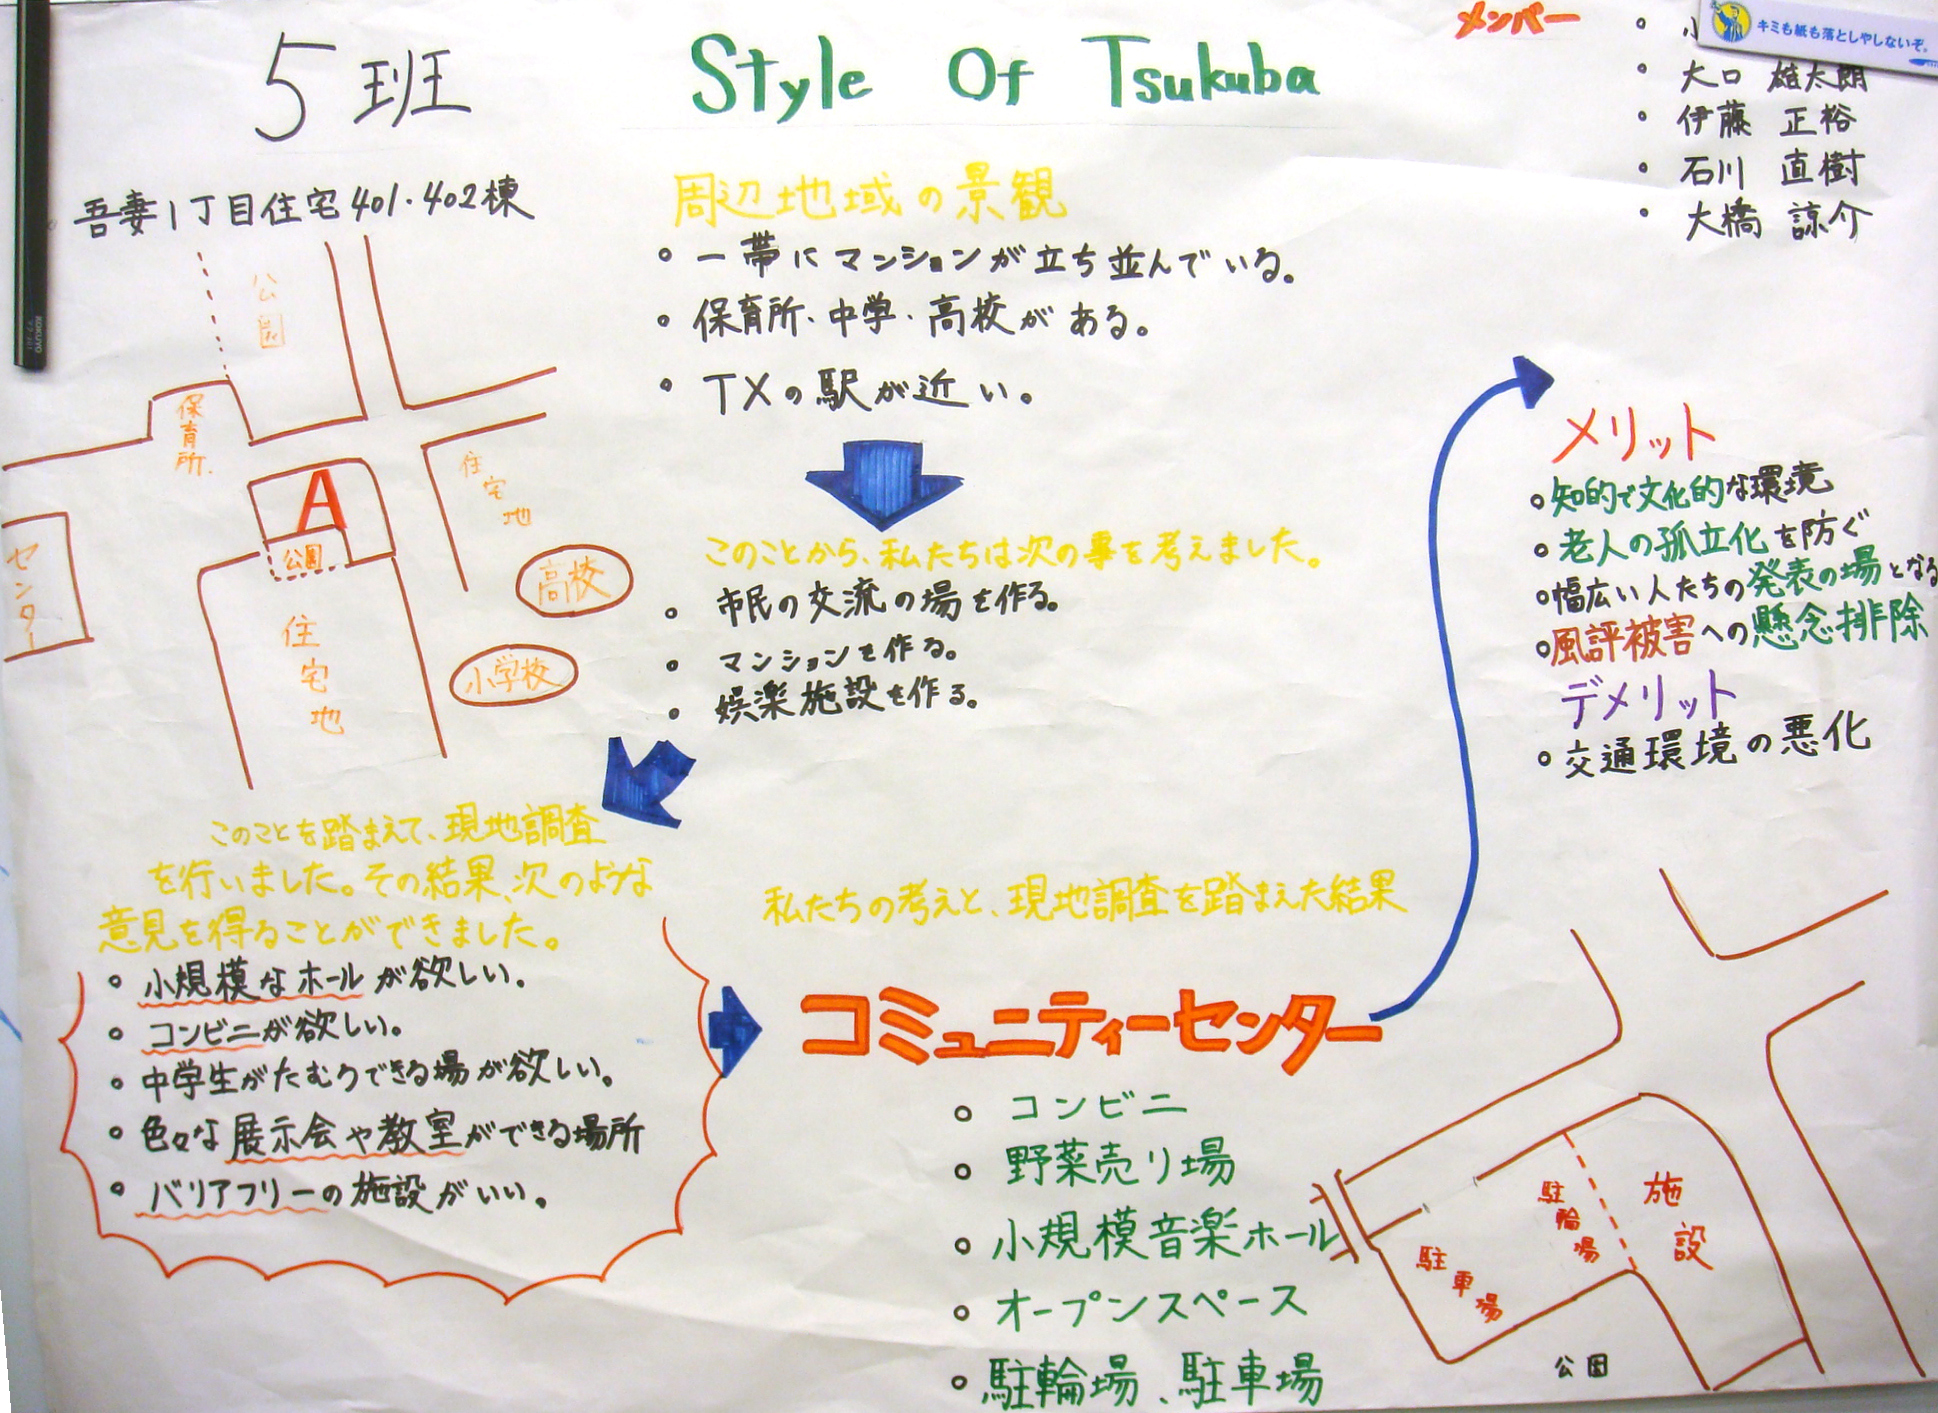 5班
Style Of Tsukuba
メンバー
キミも紙も落としやしないぞ。
大口 雄太朗
伊藤 正裕
石川 直樹
大橋 諒介
吾妻1丁目住宅401・402棟
公園
保育所.
A
公園
住宅地
センター
住宅地
高校
小学校
周辺地域の景観
一帯にマンションが立ち並んでいる。
保育所・中学・高校がある。
TXの駅が近い。
このことから、私たちは次の事を考えました。
市民の交流の場を作る。
マンションを作る。
娯楽施設を作る。
このことを踏まえて、現地調査
を行いました。その結果、次のような
意見を得ることができました。
小規模なホールが欲しい。
コンビニが欲しい。
中学生がたむろできる場が欲しい。
色々な展示会や教室ができる場所
バリアフリーの施設がいい。
私たちの考えと、現地調査を踏まえた結果
コミュニティーセンター
コンビニ
野菜売り場
小規模音楽ホール
オープンスペース
駐輪場、駐車場
メリット
知的で文化的な環境
老人の孤立化を防ぐ
幅広い人たちの発表の場となる
風評被害への懸念排除
デメリット
交通環境の悪化
施設
駐輪場
駐車場
公園
KOKUYO